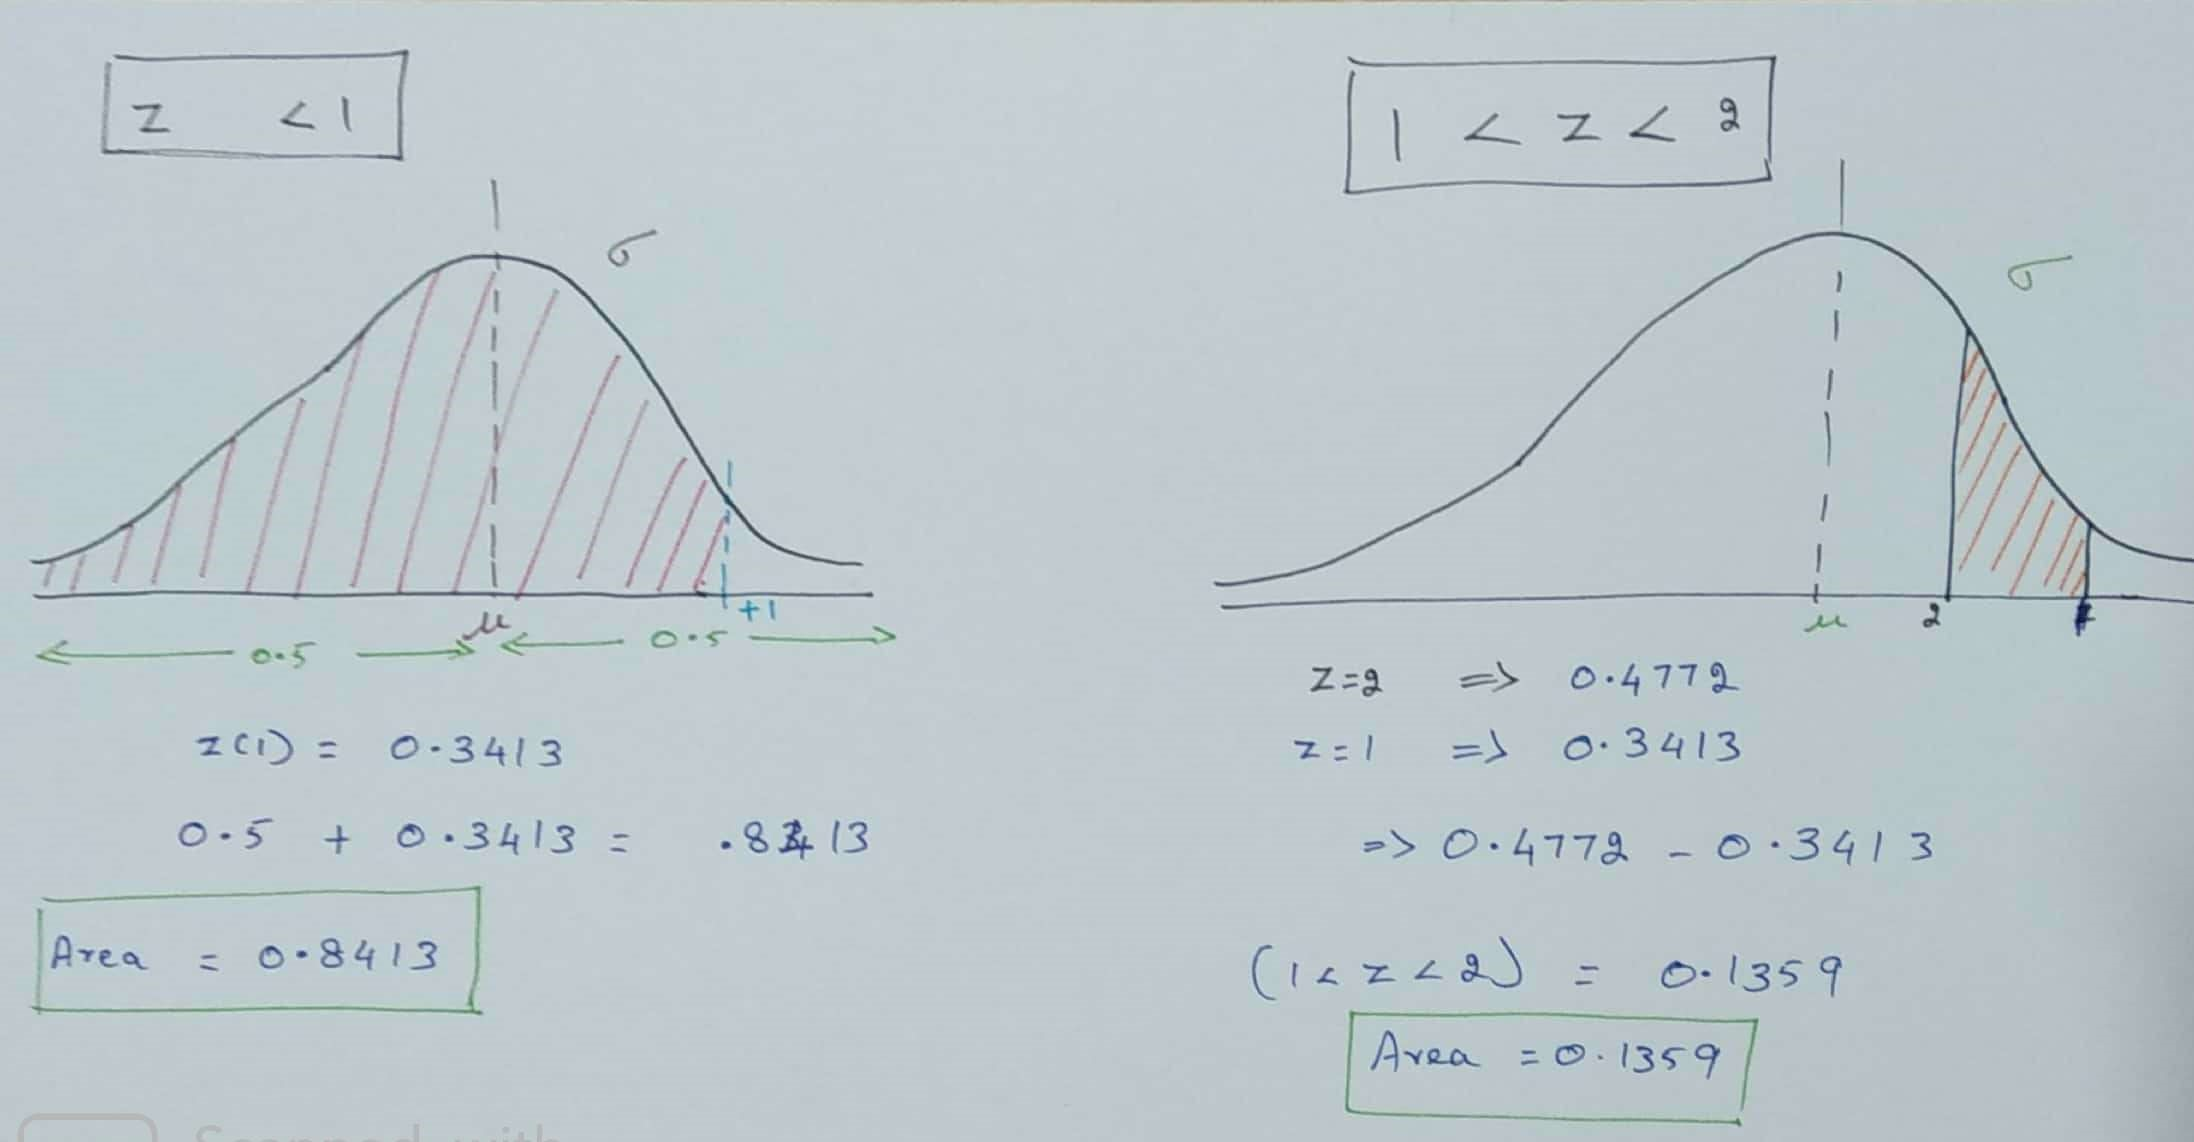 z < 1
σ
+1
μ
0.5
0.5
z(1) = 0.3413
0.5 + 0.3413 = .8413
Area = 0.8413
1 < z < 2
σ
μ
2
z=2 => 0.4772
z=1 => 0.3413
=> 0.4772 - 0.3413
(1 < z < 2) = 0.1359
Area = 0.1359